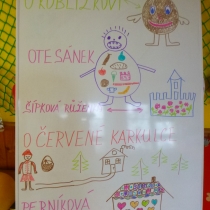 O KOBLÍŽKOVI
OTESÁNEK
ŠÍPKOVÁ RŮŽENKA
O ČERVENÉ KARKULCE
PERNÍKOVÁ